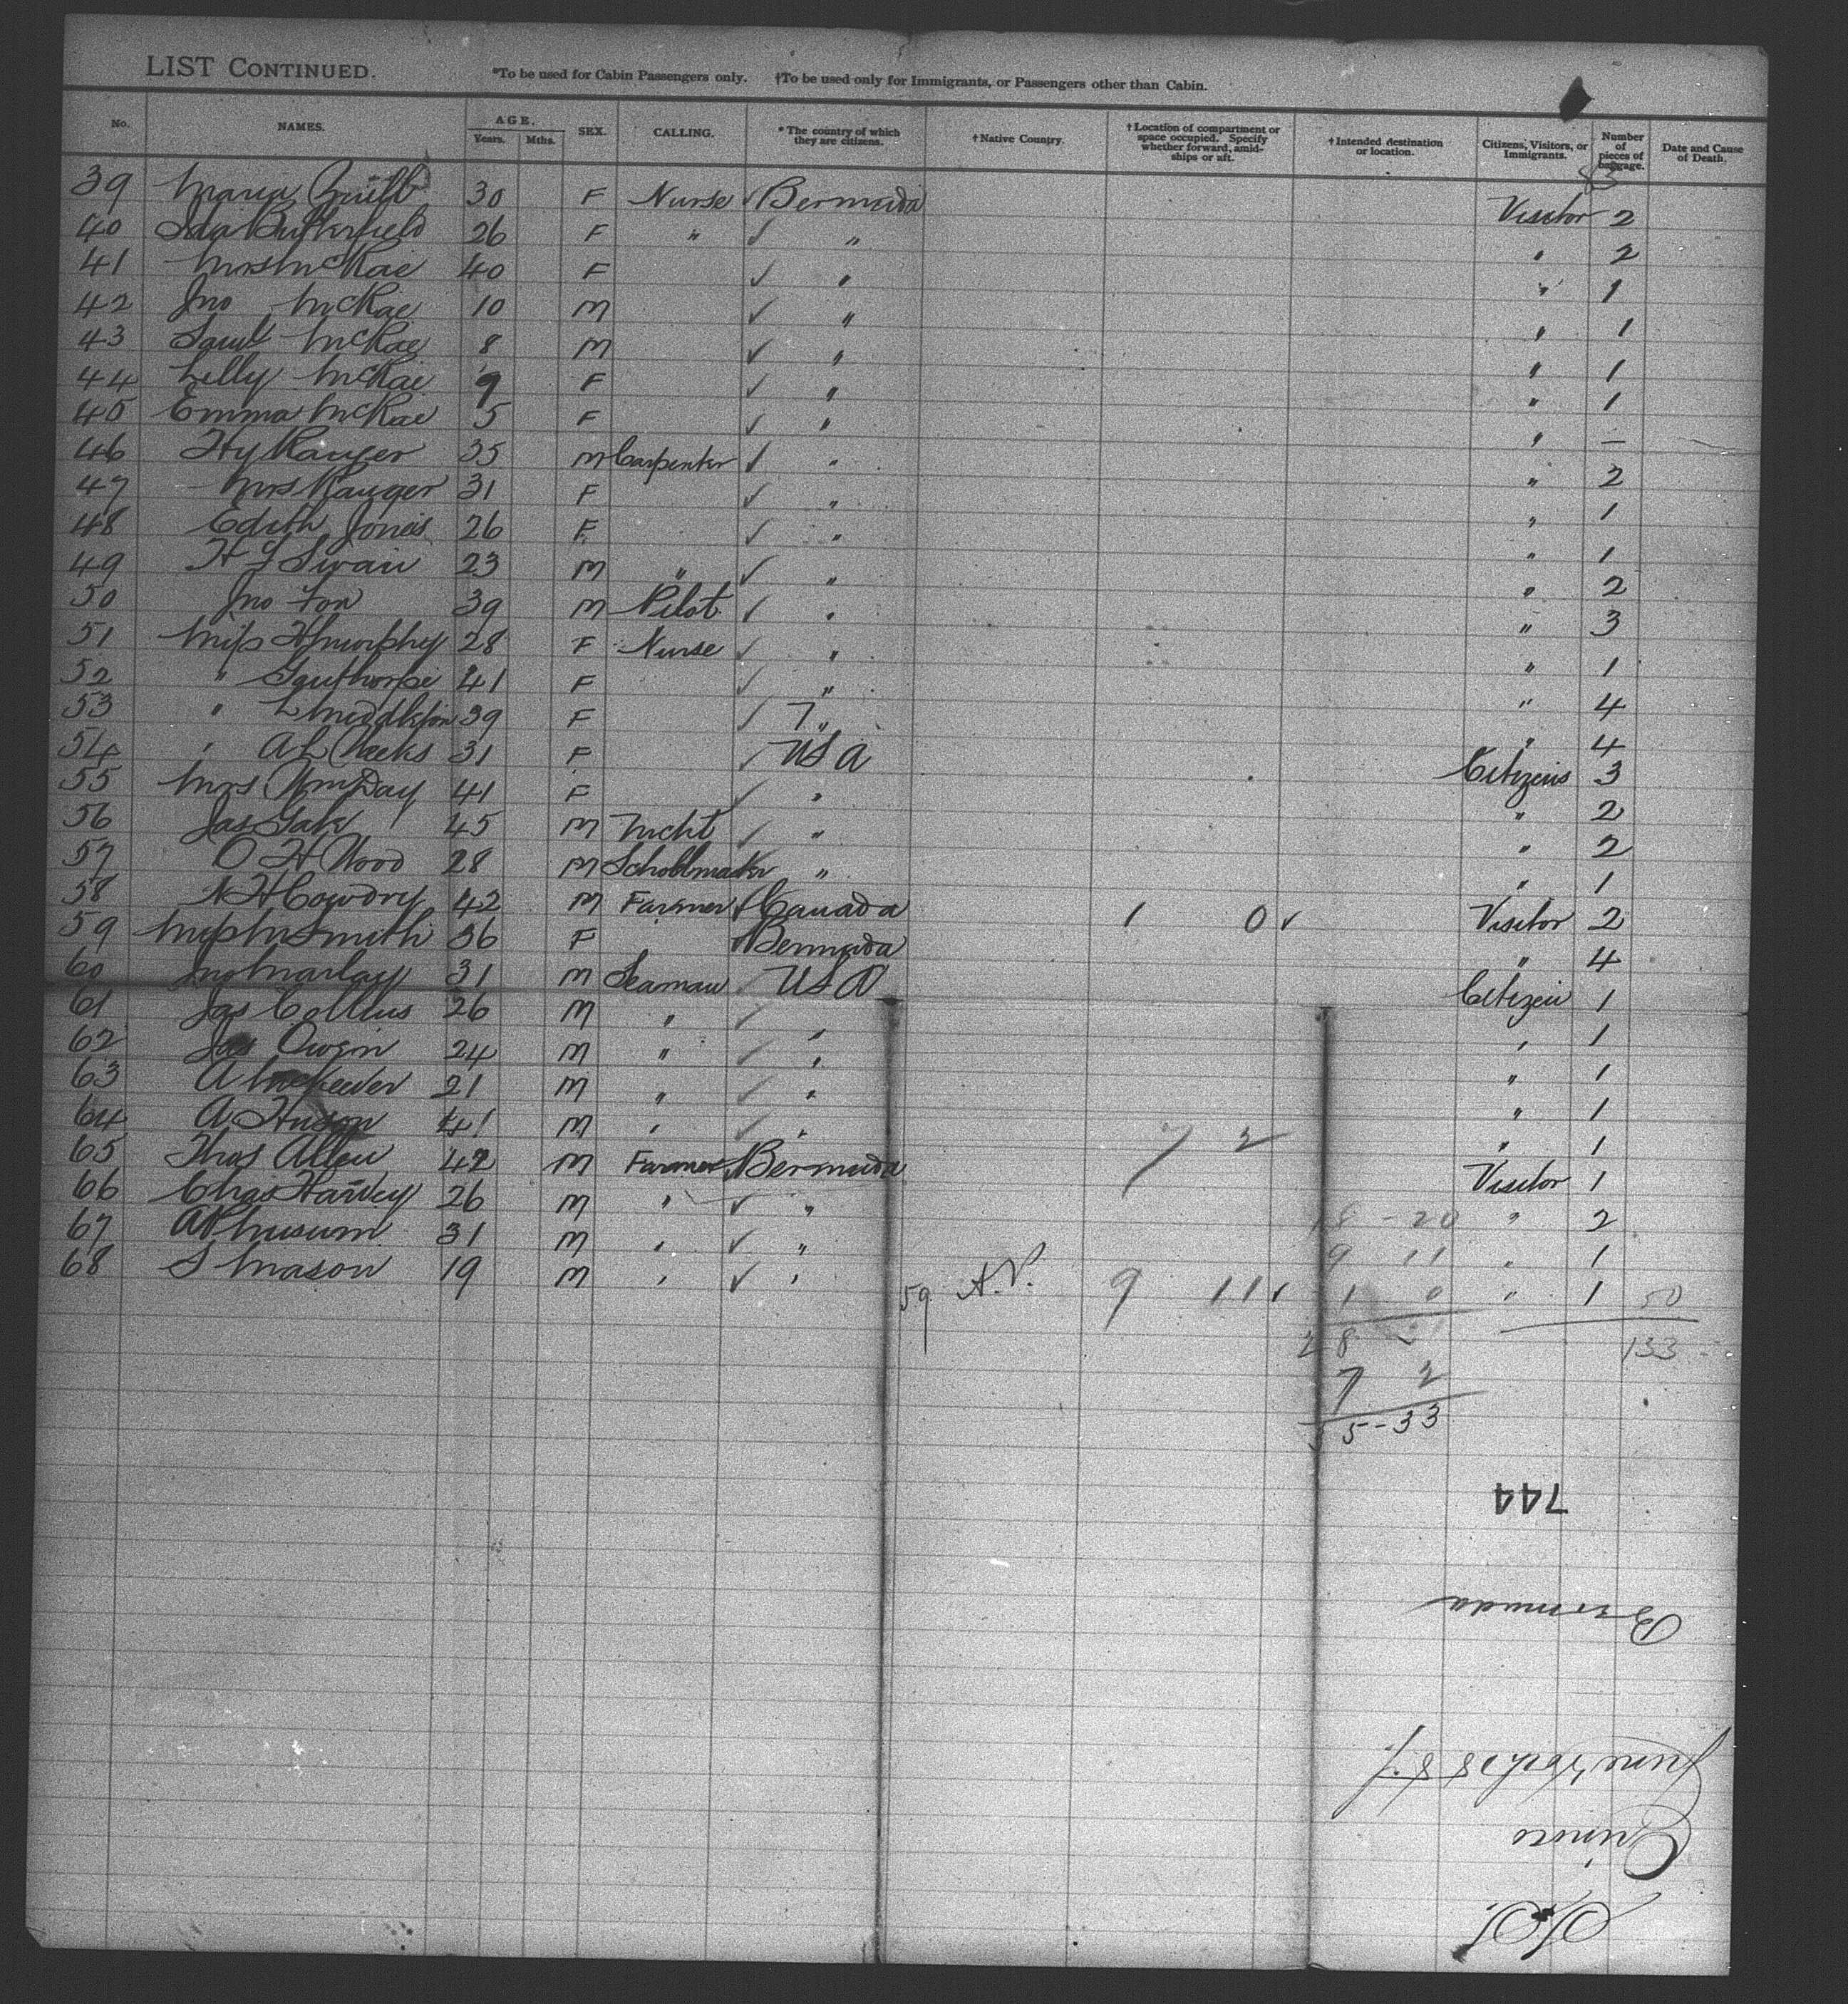 LIST CONTINUED. *To be used for Cabin Passengers only. †To be used only for Immigrants, or Passengers other than Cabin.
No. NAMES. AGE. Years. Mths. SEX. CALLING. * The country of which they are citizens. † Native Country. † Location of compartment or space occupied. Specify whether forward, amidships or aft. † Intended destination or location. Citizens, Visitors, or Immigrants. Number of pieces of baggage. Date and Cause of Death.
83
39 Maria 30 F Nurse ✓ Bermuda Visitor 2
40 Ida Butterfield 26 F " ✓ " " 2
41 Mrs McRae 40 F ✓ " " 1
42 Jno McRae 10 M ✓ " " 1
43 Saml McRae 8 M ✓ " " 1
44 Lilly McRae 9 F ✓ " " 1
45 Emma McRae 5 F ✓ " " —
46 Hy Rauger 35 M Carpenter ✓ " " 2
47 Mrs Rauger 31 F ✓ " " 1
48 Edith Jones 26 F ✓ " " 1
49 H S Swan 23 M " ✓ " " 2
50 Jno Fox 39 M Pilot ✓ " " 3
51 Miss H Murphy 28 F Nurse ✓ " " 1
52 " Gauthorpe 41 F ✓ " " 4
53 " L Middleton 39 F ✓ " " 4
54 " A L Weeks 31 F ✓ USA Citizens 3
55 Mrs Wm Day 41 F ✓ " " 2
56 Jas 45 M Mcht ✓ " " 2
57 O H Wood 28 M Schoolmaster " " 1
58 N H Cowdry 42 M Farmer ✓ Canada 1 0 ✓ Visitor 2
59 Miss M Smith 36 F ✓ Bermuda " 4
60 Jno Marlay 31 M Seaman ✓ USA Citizen 1
61 Jas Collins 26 M " ✓ " " 1
62 Jas Owen 24 M " ✓ " " 1
63 A McKeever 21 M " ✓ " " 1
64 A Huson 41 M " ✓ " " 1
7 2
65 Thos Allen 42 M Farmer Bermuda Visitor 1
66 Chas Harvey 26 M " ✓ " " 2
18 - 20
67 31 M " ✓ " " 1
9 11
68 S Mason 19 M " ✓ " 59 A.V. 9 11 ✓ 1 0 " 1 50
28 133
7 2
35-33
744
Bermuda
June 1887